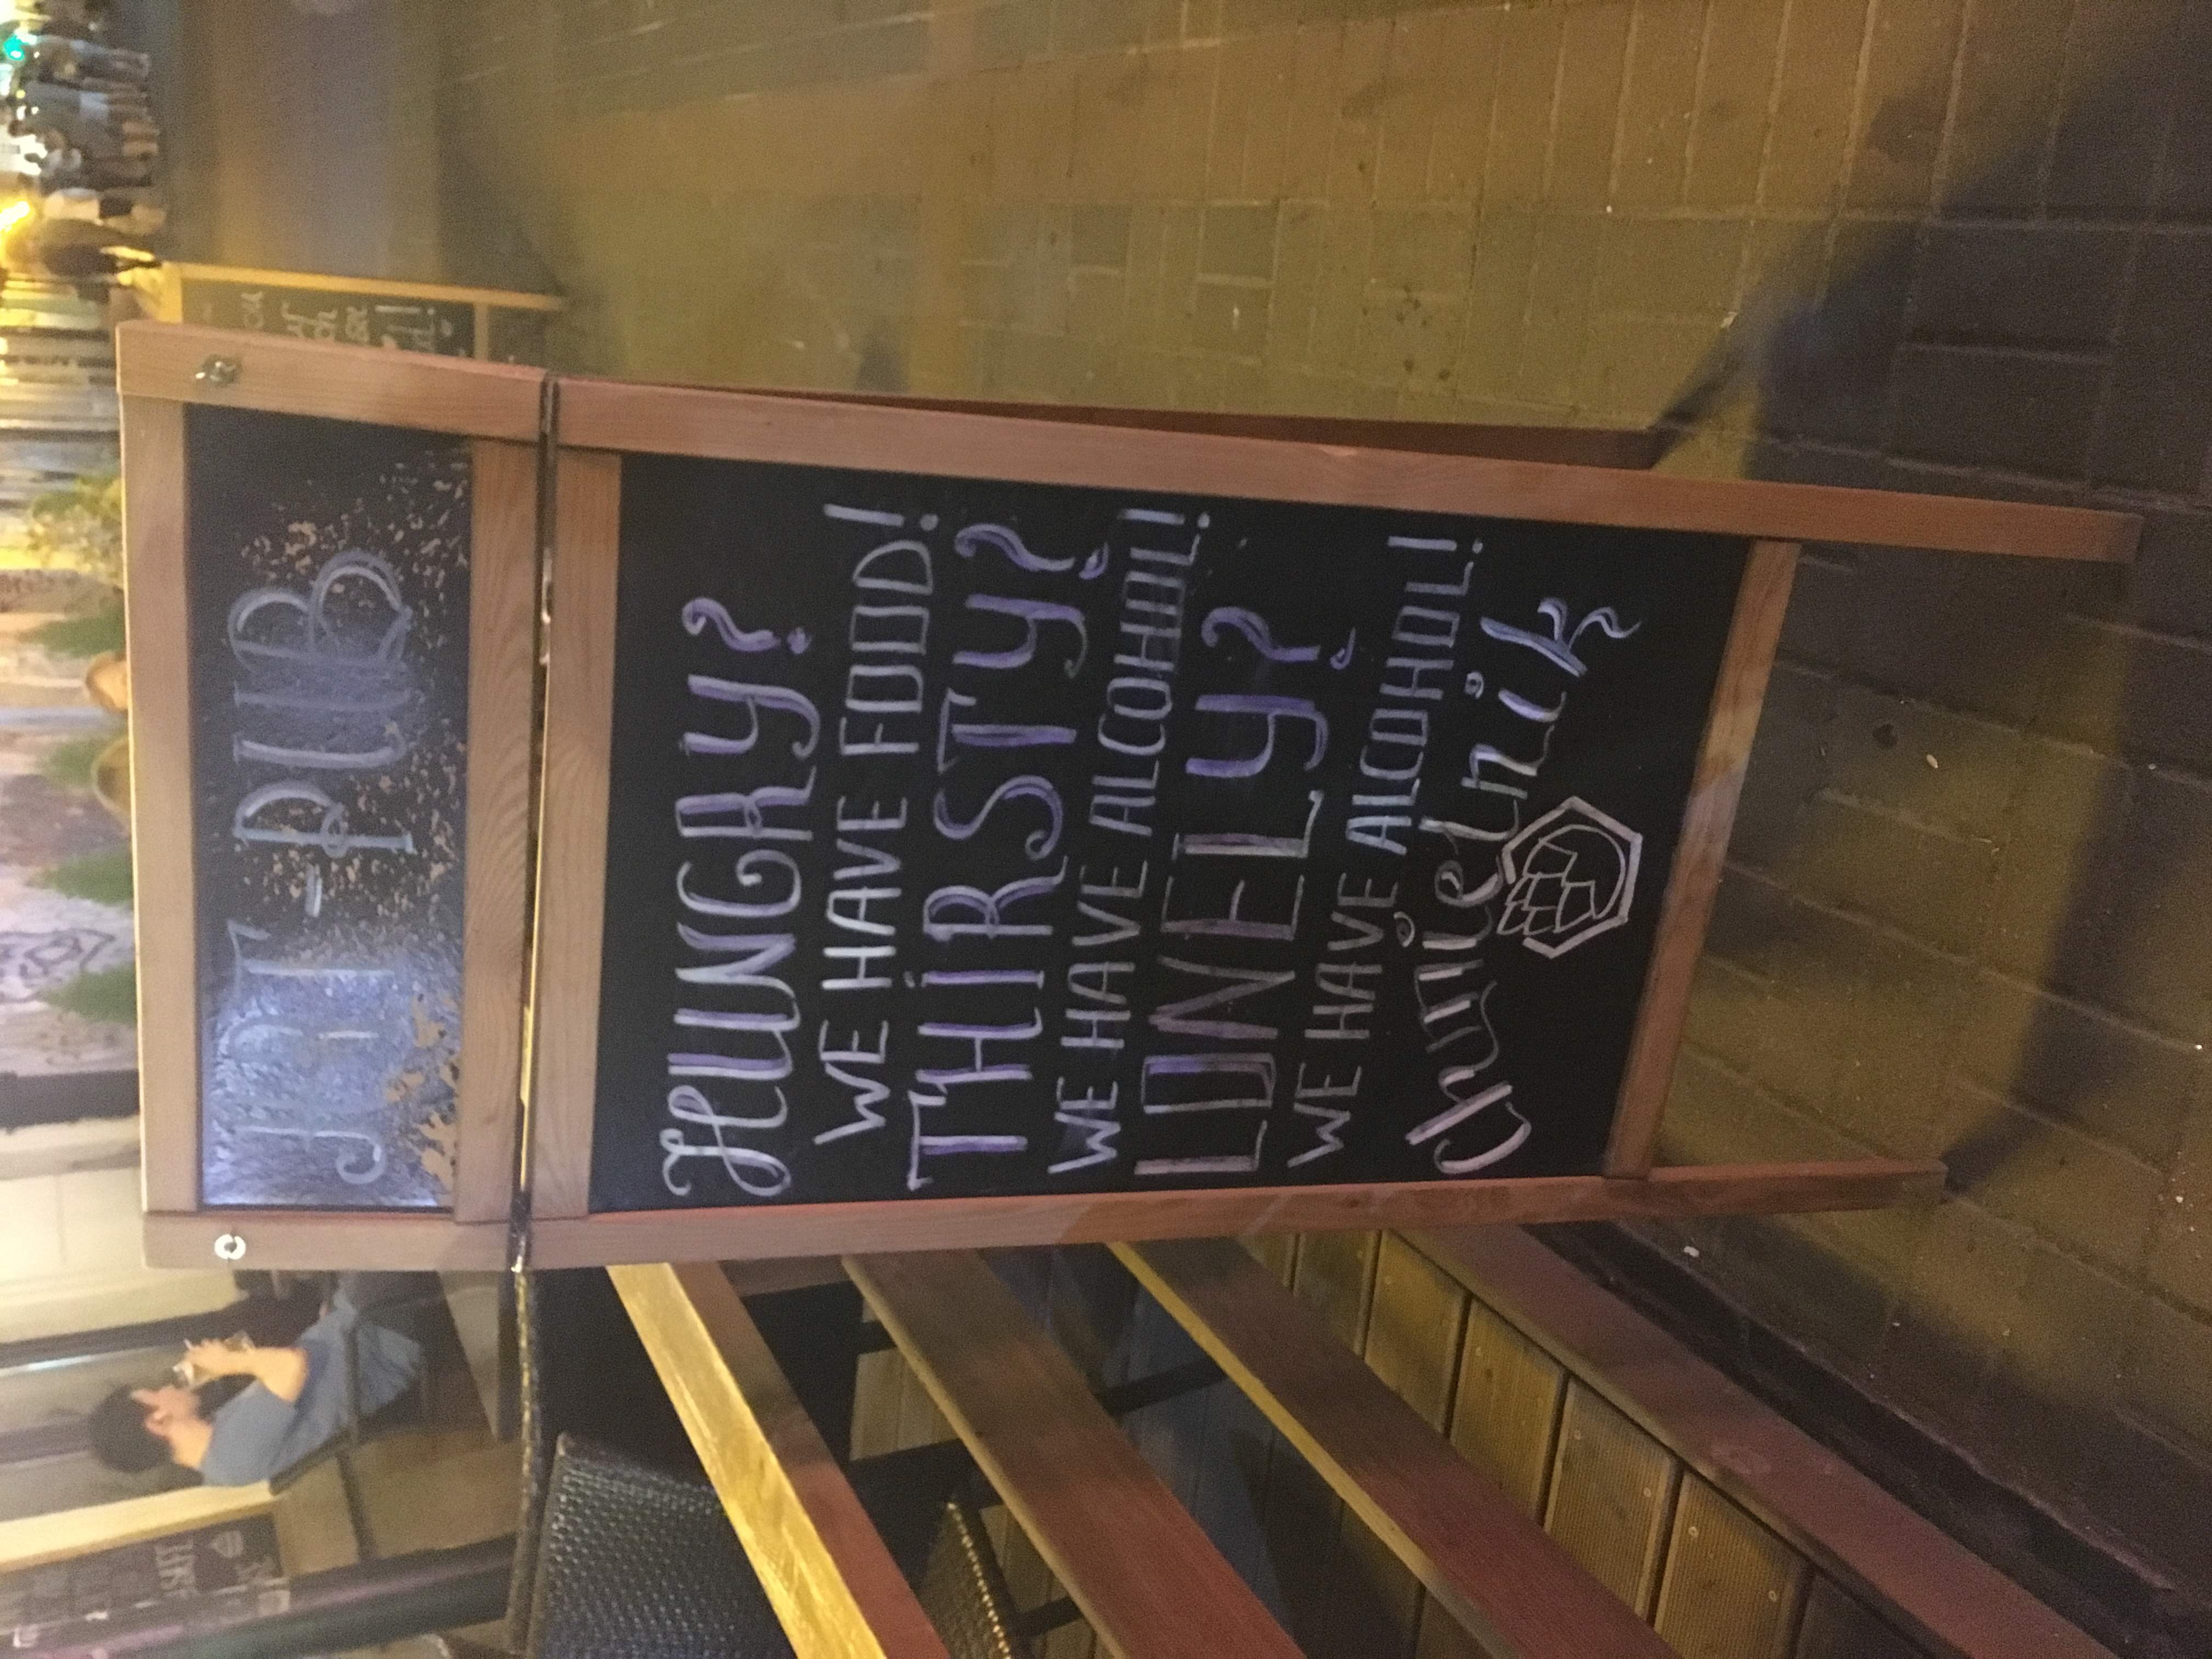 PUB
HUNGRY?
WE HAVE FOOD!
THiRSTY?
WE HAVE ALCOHOL!
LONELY?
WE HAVE ALCOHOL!
chmielnik